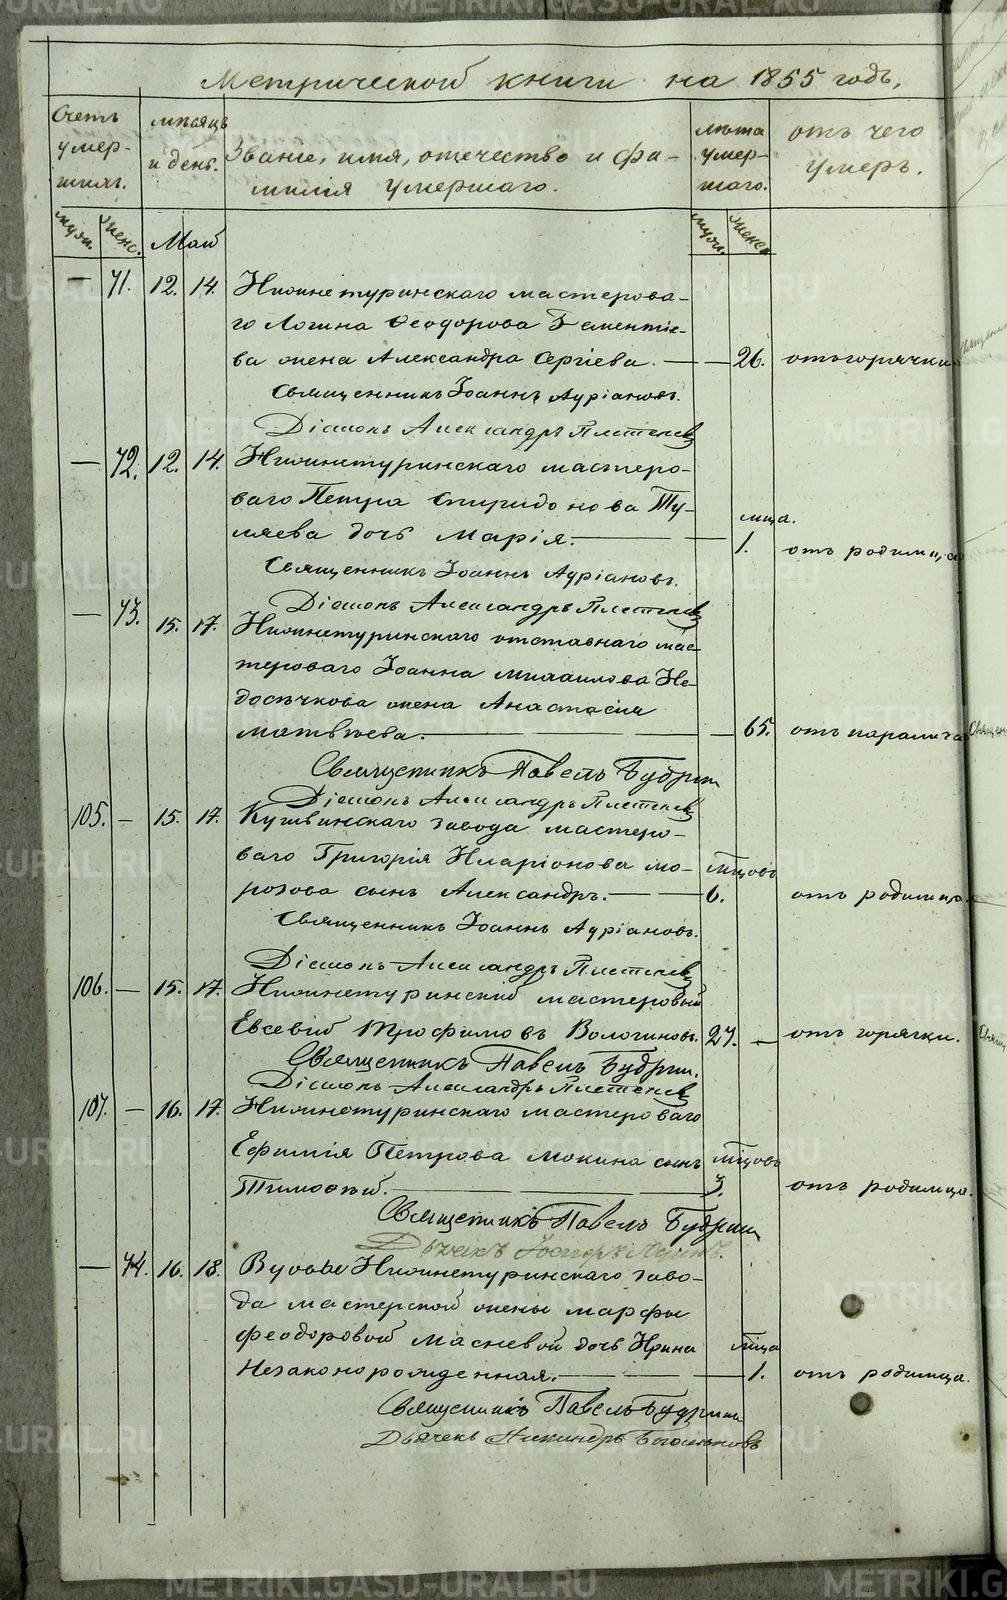 Метрической книги на 1855 годъ,
Счетъ умер- шихъ.
мѣсяцъ и день.
Званіе, имя, отечество и фа-
милія умершаго.
лѣта умер- шаго.
отъ чего умеръ.
муж. женс.
Май
муж. женск.
— 71. 12. 14. Нижнетуринскаго мастерова-
го Логина Ѳеодорова Дементіе-
ва жена Александра Сергіева. — — 26. отъ горячки
Священникъ Іоаннъ Адріановъ.
Діаконъ Александръ Плетенев
— 72. 12. 14. Нижнетуринскаго мастеро-
ваго Петра Спиридонова Ту-
ляева дочь Марія. — — мца. 1. отъ родимца
Священникъ Іоаннъ Адріановъ.
Діаконъ Александръ Плетенев
— 73. 15. 17. Нижнетуринскаго отставнаго мас-
тероваго Іоанна Михаилова Не-
досѣчкова жена Анастасія
Матвѣева. — — 65. отъ паралича
Священникъ Павелъ Будрин
Діаконъ Александръ Плетенев
105. — 15. 17. Кушвинскаго завода мастеро-
ваго Григорія Иларіонова Мо-
розова сынъ Александръ. — — мцовъ 6. отъ родимца.
Священникъ Іоаннъ Адріановъ.
Діаконъ Александръ Плетенев
106. — 15. 17. Нижнетуринскій мастеровый
Евсевій Трофимовъ Вологиновъ. 27. — отъ горячки.
Священникъ Павелъ Будрин.
Діаконъ Александръ Плетенев
107. — 16. 17. Нижнетуринскаго мастероваго
Ефимія Петрова Мокина сынъ
Тимоѳей. — — мцовъ 3. отъ родимца.
Священникъ Павелъ Будрин
Дьячекъ
— 74. 16. 18. Вдовы Нижнетуринскаго заво-
да мастерской жены Марфы
Феодоровой Масневой дочь Ирина
Незаконорожденная. — — мца 1. отъ родимца.
Священникъ Павелъ Будрин
Дьячекъ
METRIKI.GASO-URAL.RU